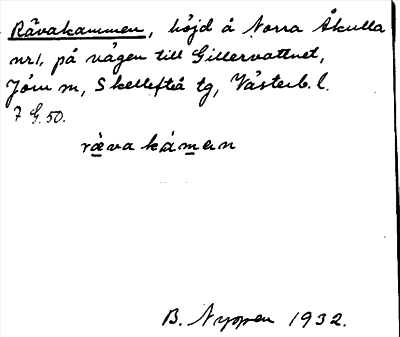 Rävakammen, höjd å Norra Åkulla
nr 1, på vägen till Gillervattnet,
Jörn sn, Skellefteå tg, Västerb. l.
7 G. 50.
rävakáman
B. Nyppen 1932.